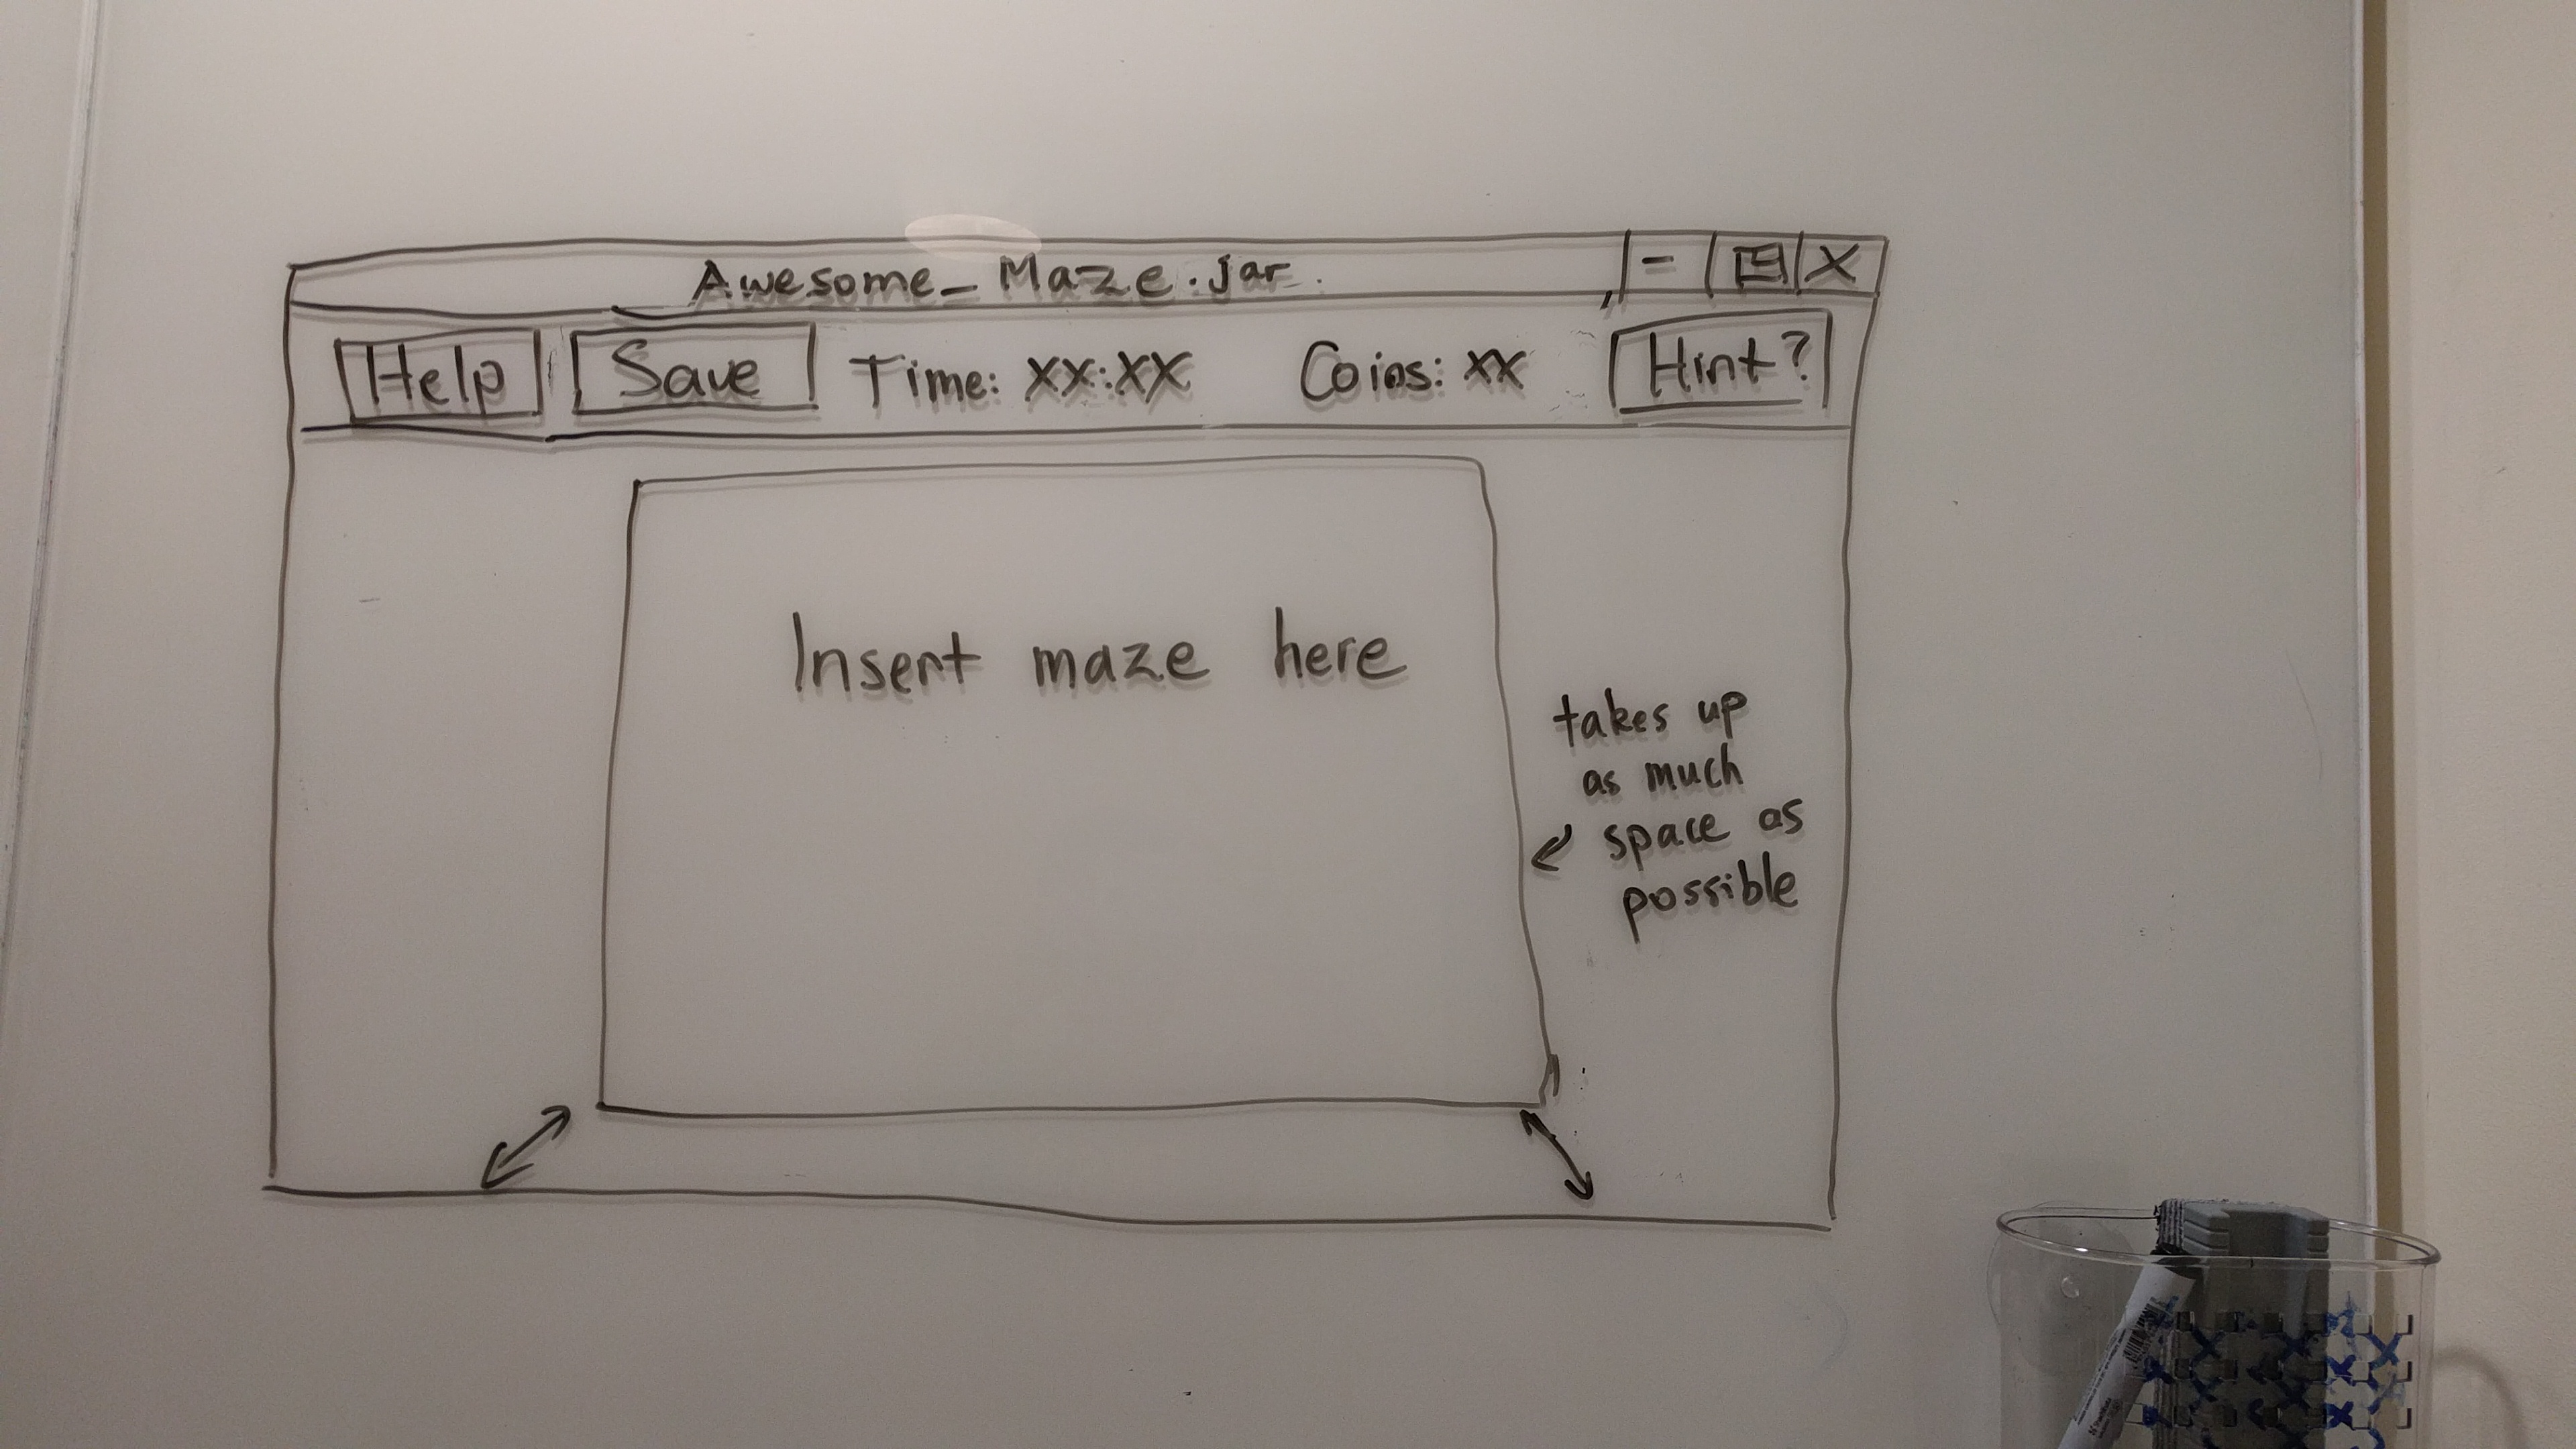 Awesome_Maze.jar
Help Save Time: xx:xx Coins: xx Hint?
Insert maze here
takes up
as much
space as
possible